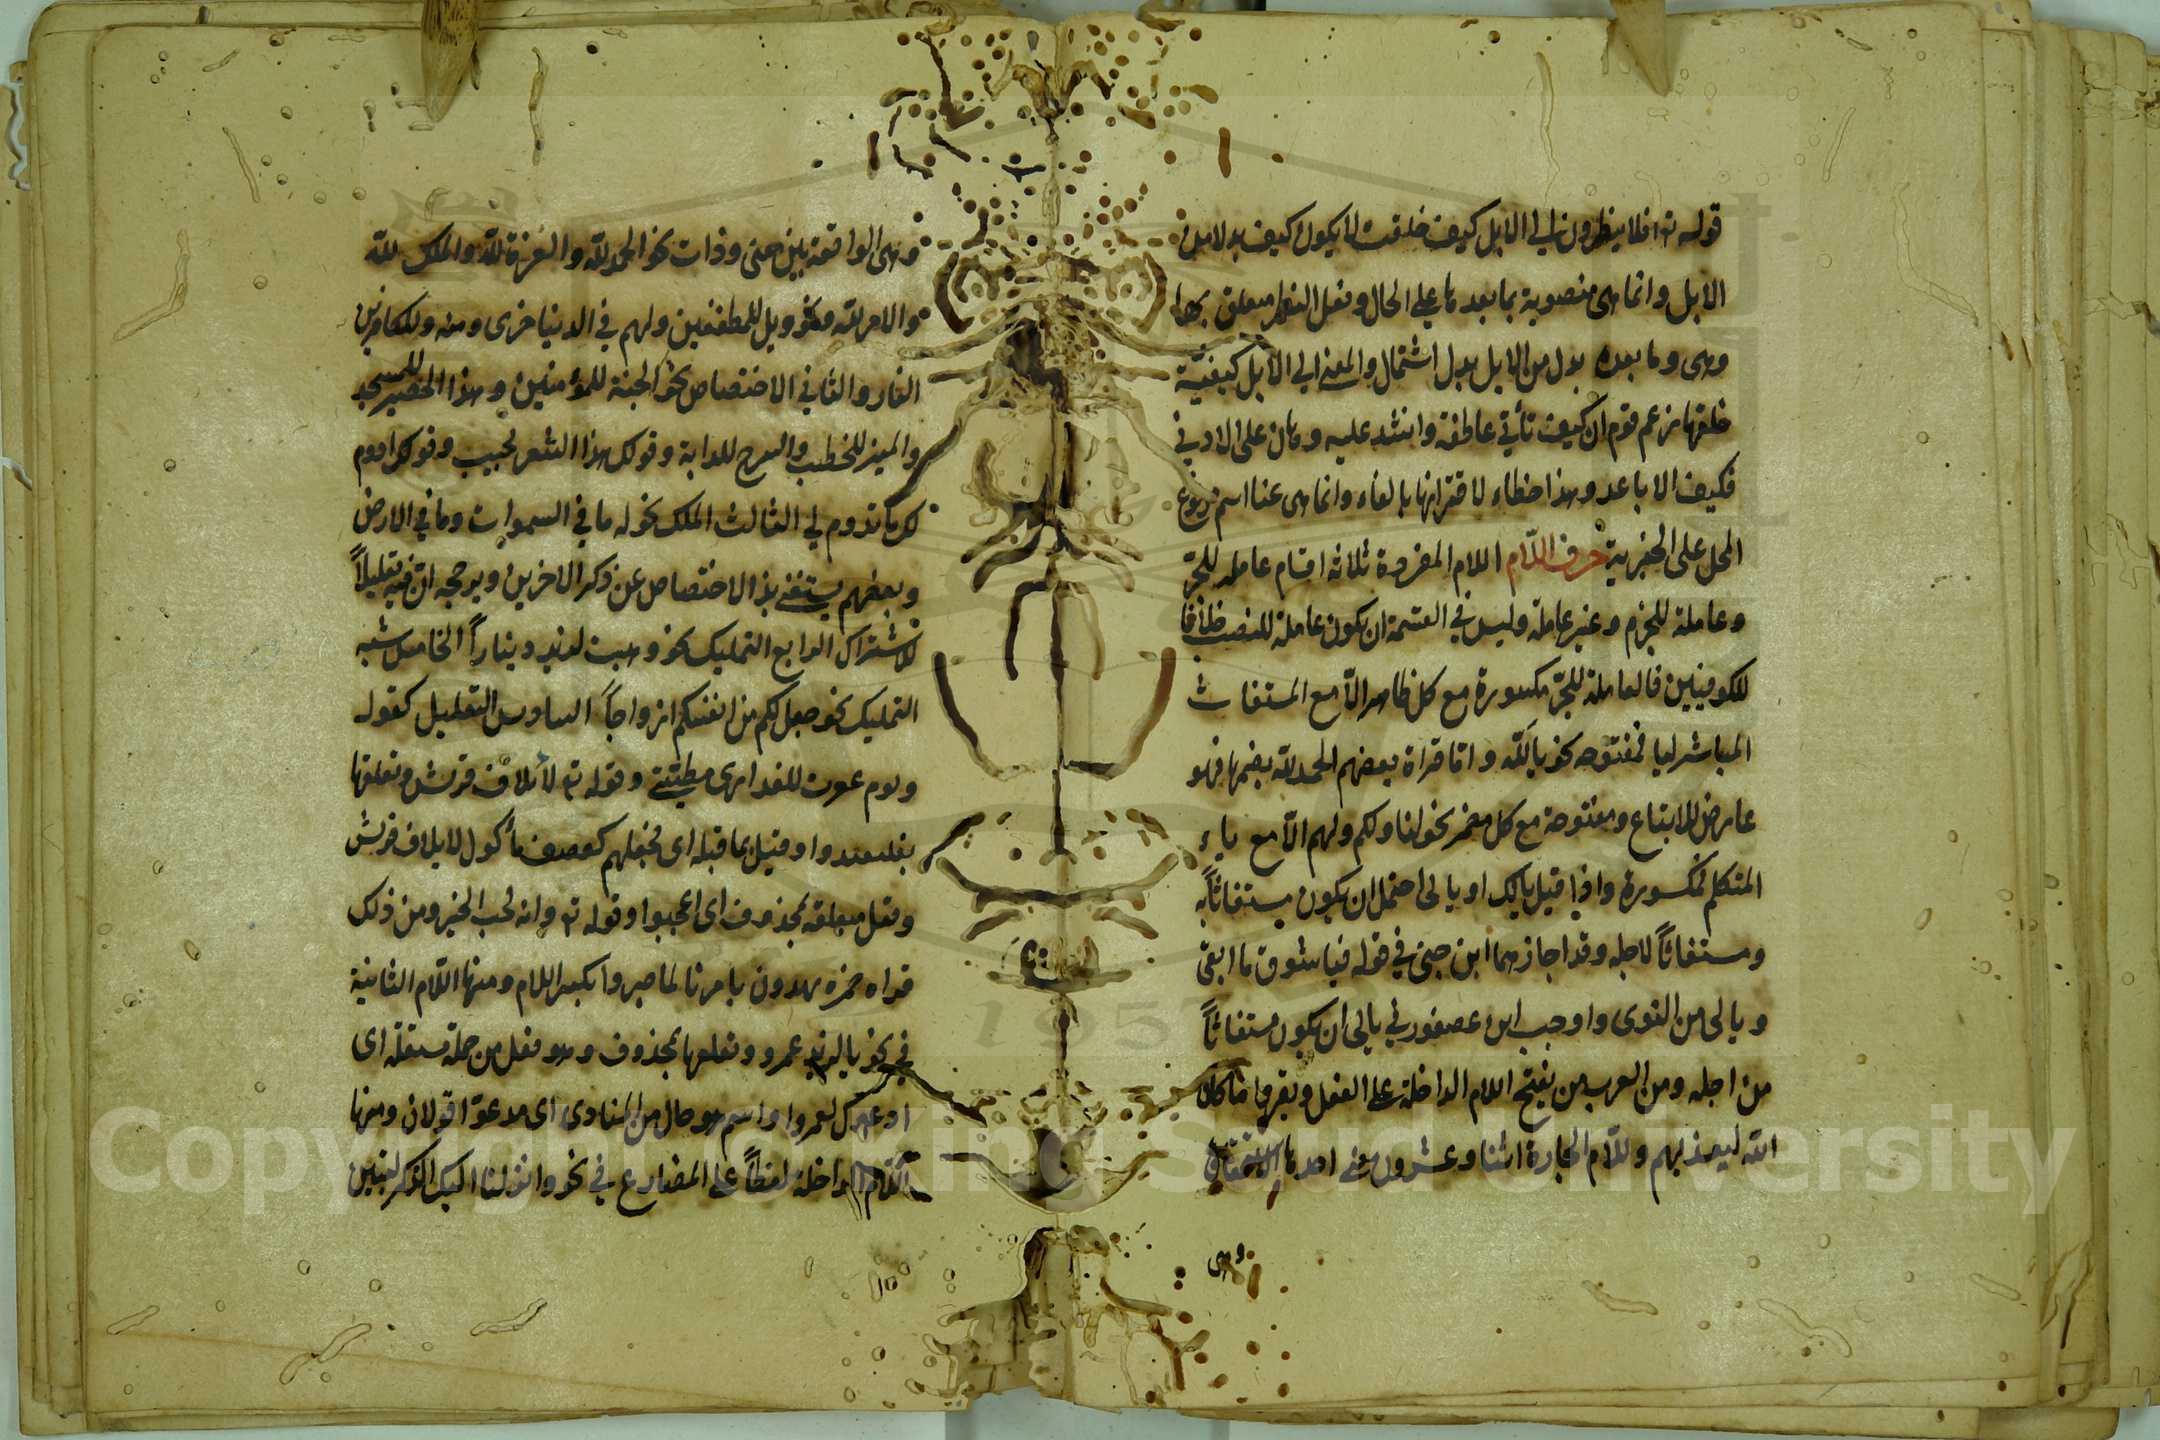 قوله ته افلا ينظرون الى الابل كيف خلقت لا يكون كيف بدلا من
الابل وانما هى منصوبة بما بعدها على الحال وفعل النظر معلق بها
وهى وما بعده بدل من الابل بدل اشتمال والمعنى الى الابل كيفية
خلقها زعم قوم ان كيف تأتي عاطفة وانشد عليه وهان على الادنى
فكيف الاباعد وهذا خطاء لاقترانها بالفاء وانما هى هنا اسم مرفوع
المحل على الخبرية حرف اللّام اللام المفردة ثلاثة اقسام عاملة للجرّ
وعاملة للجزم وغير عاملة وليس في القسمة ان يكون عاملة للنصب خلافا
للكوفيين فالعاملة للجرّ مكسورة مع كل ظاهر الاّ مع المستغاث
المباشر ليا فمفتوحه نحو يا للّه واما قراة بعضهم الحمد لله بضمها فهو
عارض للاتباع ومفتوحة مع كل مضمر نحو لنا ولكم ولهم الاّ مع ياء
المتكلم فمكسورة واذا قيل يالك او يالى احتمل ان يكون مستغاثاً به
ومستغاثاً لاجله وقد اجازهما ابن جنى في قوله فيا شوق ما ابقى
ويالى من النوى واوجب ابن عصفور في يالى ان يكون مستغاثاً
من اجله ومن العرب من يفتح اللام الداخلة على الفعل ويقرا وما كان
اللّه ليعذبهم وللّام الجارة اثنا وعشرون معنى احدها الاستحقاق
وهى
وهى الواقعة بين معنى وذات نحو الحمد للّه والعزة للّه والملك للّه
والامر للّه ونحو ويل للمطففين ولهم في الدنيا خزى ومنه وللكافرين
النار والثاني الاختصاص نحو الجنة للمؤمنين وهذا الحصير للمسجد
والمنبر للخطيب والسرج للدابة وقولك هذا الشعر لحبيب وقولك ادوم
لك ما تدوم لي الثالث الملك نحو له ما في السموات وما في الارض
وبعضهم يستغنى بذا الاختصاص عن ذكر الاخرين ويرجحه ان فيه تقليلاً
للاشتراك الرابع التمليك نحو وهبت لزيد ديناراً الخامس شبه
التمليك نحو جعل لكم من انفسكم ازواجاً السادس التعليل كقوله
ويوم عقرت للعذارى مطيتى وقوله ته لايلاف قريش وتعلقها
بفليعبدوا وقيل بما قبله اى فجعلهم كعصف مأكول لايلاف قريش
وقيل متعلقة بمحذوف اى اعجبوا وقوله ته وانه لحب الخير ومن ذلك
قراه حمزه يهدون بامرنا لما صبروا بكسر اللام ومنها اللّام الثانية
في نحو يا لزيد لعمرو وتعلقها بمحذوف وهو فعل من جملة مستقلة اى
ادعوك لعمرو او اسم هو حال من المنادى اى مدعوّا قولان ومنها
اللّام الداخلة لفظاً على المضارع في نحو وانزلنا اليك الذكر لتبين
Copyright © King Saud University
1957